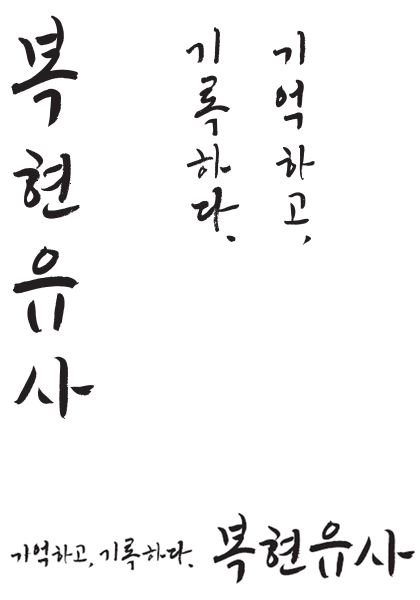 복현유사
기억하고,
기록하다.
기억하고, 기록하다. 복현유사